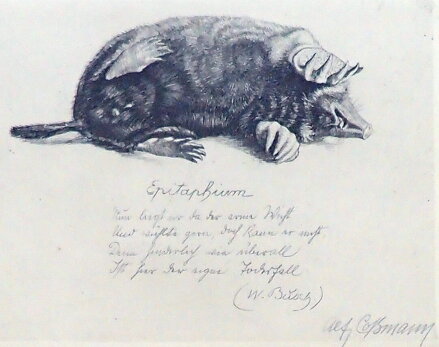 Epitaphium
Nun liegt er da der arme Wicht
Und wühlte gern, doch kann er nicht
Denn hinderlich wie überall
Ist hier der eigne Todesfall
(W. Busch)
Alf. Coßmann